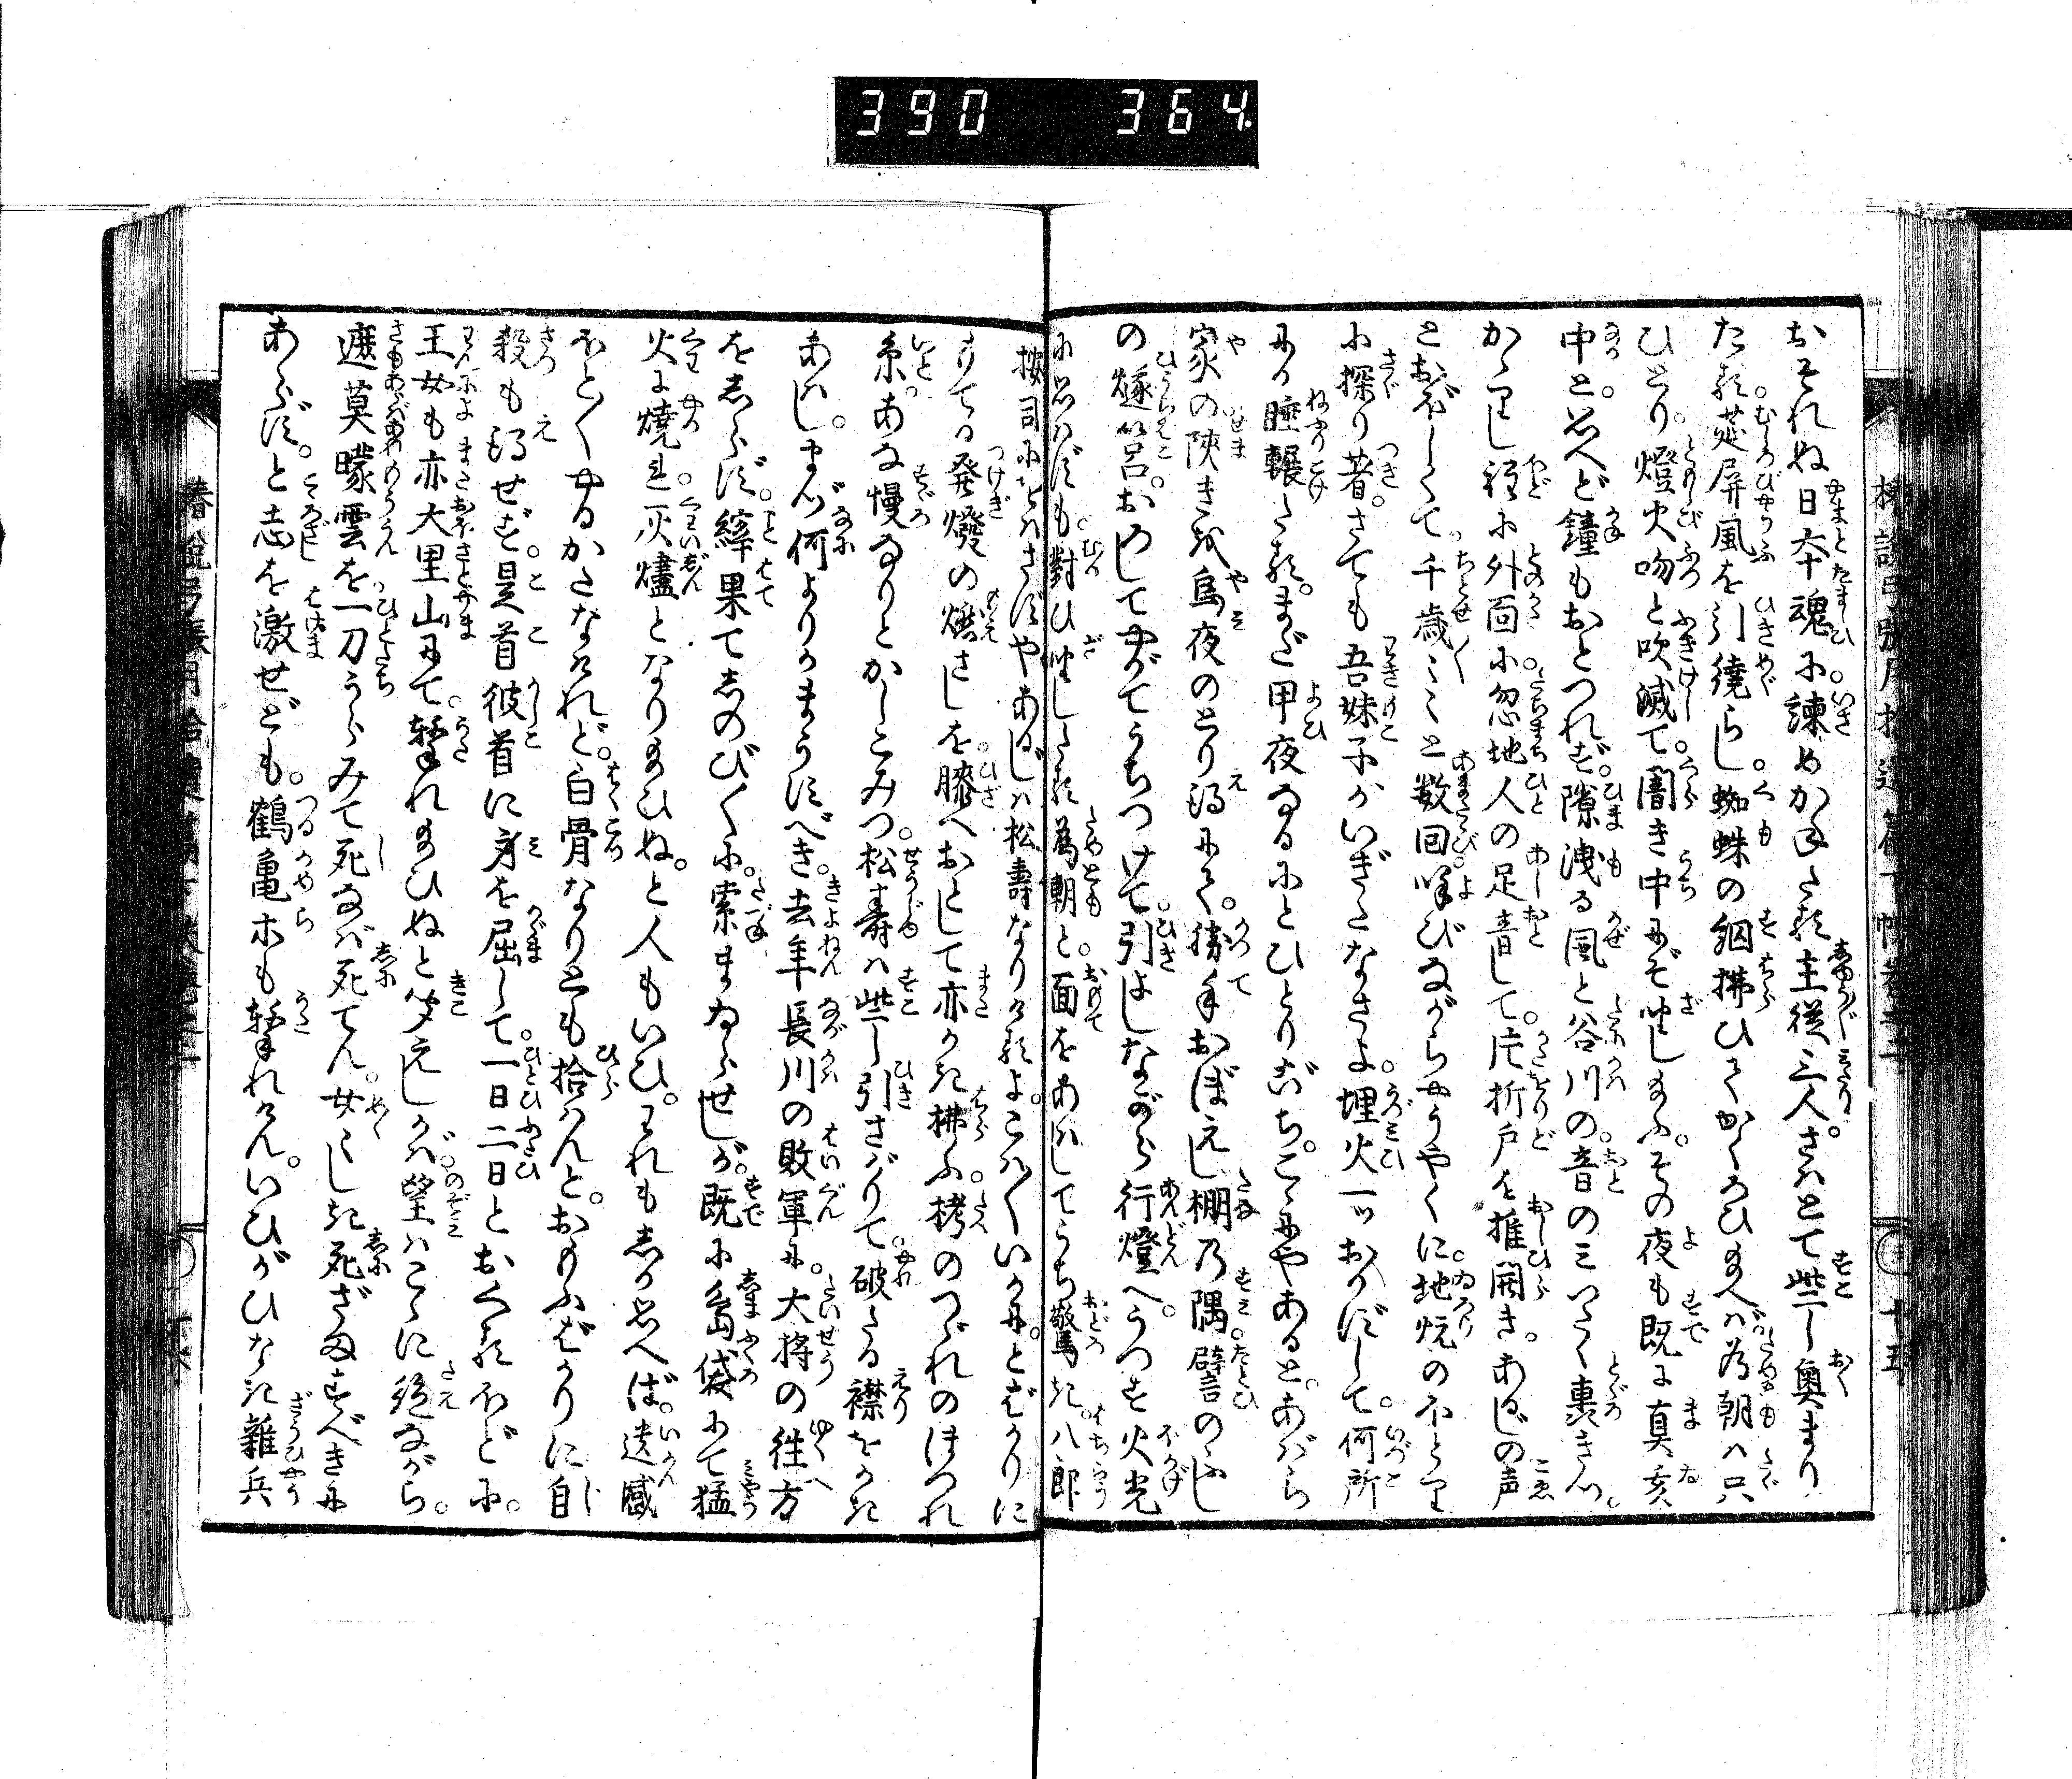 390 364
おそれぬ日本魂に諫めかねたる主従三人。さはとて些し奥まり
たる。莚屏風を引繞らし。蜘蛛の網拂ひてかくろひ給へば。為朝は只
ひとり。燈火吻と吹滅て。闇き中にぞ坐し給ふ。その夜も既に真夜
中と。思へど鐘もおとつれず。隙洩る風と谷川の。音のみいたく轟きつ。
かゝりし程に外面に。忽地人の足音して。片折戸を推開き。あるじの声
とおぼしくて。千歳〳〵と数回。呼びながらやうやくに。地炕のほとり
に探り著。さても吾妹子がいぎたなさよ。埋火一ッおかずして。何所
にか睡輾たる。まだ甲夜なるにとひとりごち。こゝにやあると。あばら
家の陜き我烏夜のとり得にて。勝手おぼえし棚の隅。譬のふし
の燧筥。おろしてやがてうちつけて。引よしながら行燈へ。うつす火光
に思はずも。對ひ坐したる為朝と。面をあはしてうち驚き。八郎
按司にをはさずや。あるじは松壽なりけるよ。こは〳〵いかに。とばかりに
さりてる発燭の燃さしを。膝へおとして亦かき拂ふ。栲のつゞれのほつれ
糸。あな慢なりとかしこみつ。松壽は些し引さがりて。破たる襟をかき
あはし。まづ何よりか申すべき。去年長川の敗軍に。大将の往方
をしらず。縡果てしのび〳〵に。索まゐらせしが。既に島袋にて猛
火に焼れ。灰燼となり給ひぬ。と人もいひ。われもしか思へば。遺憾
ほと〳〵やるかたなけれど。白骨なりとも拾はんと。おもふばかりに自
殺も得せず。是首彼首に身を屈して。一日二日とおくるほどに。
王女も亦大里山にて。撃れ給ひぬと聞えしかば。望はこゝに絶ながら。
遮莫曚雲を一刀うらみて死なば死てん。女〳〵しき死ざまをすべきに
あらず。と志を激せども。鶴亀ホも撃れけん。いひがひなき雜兵